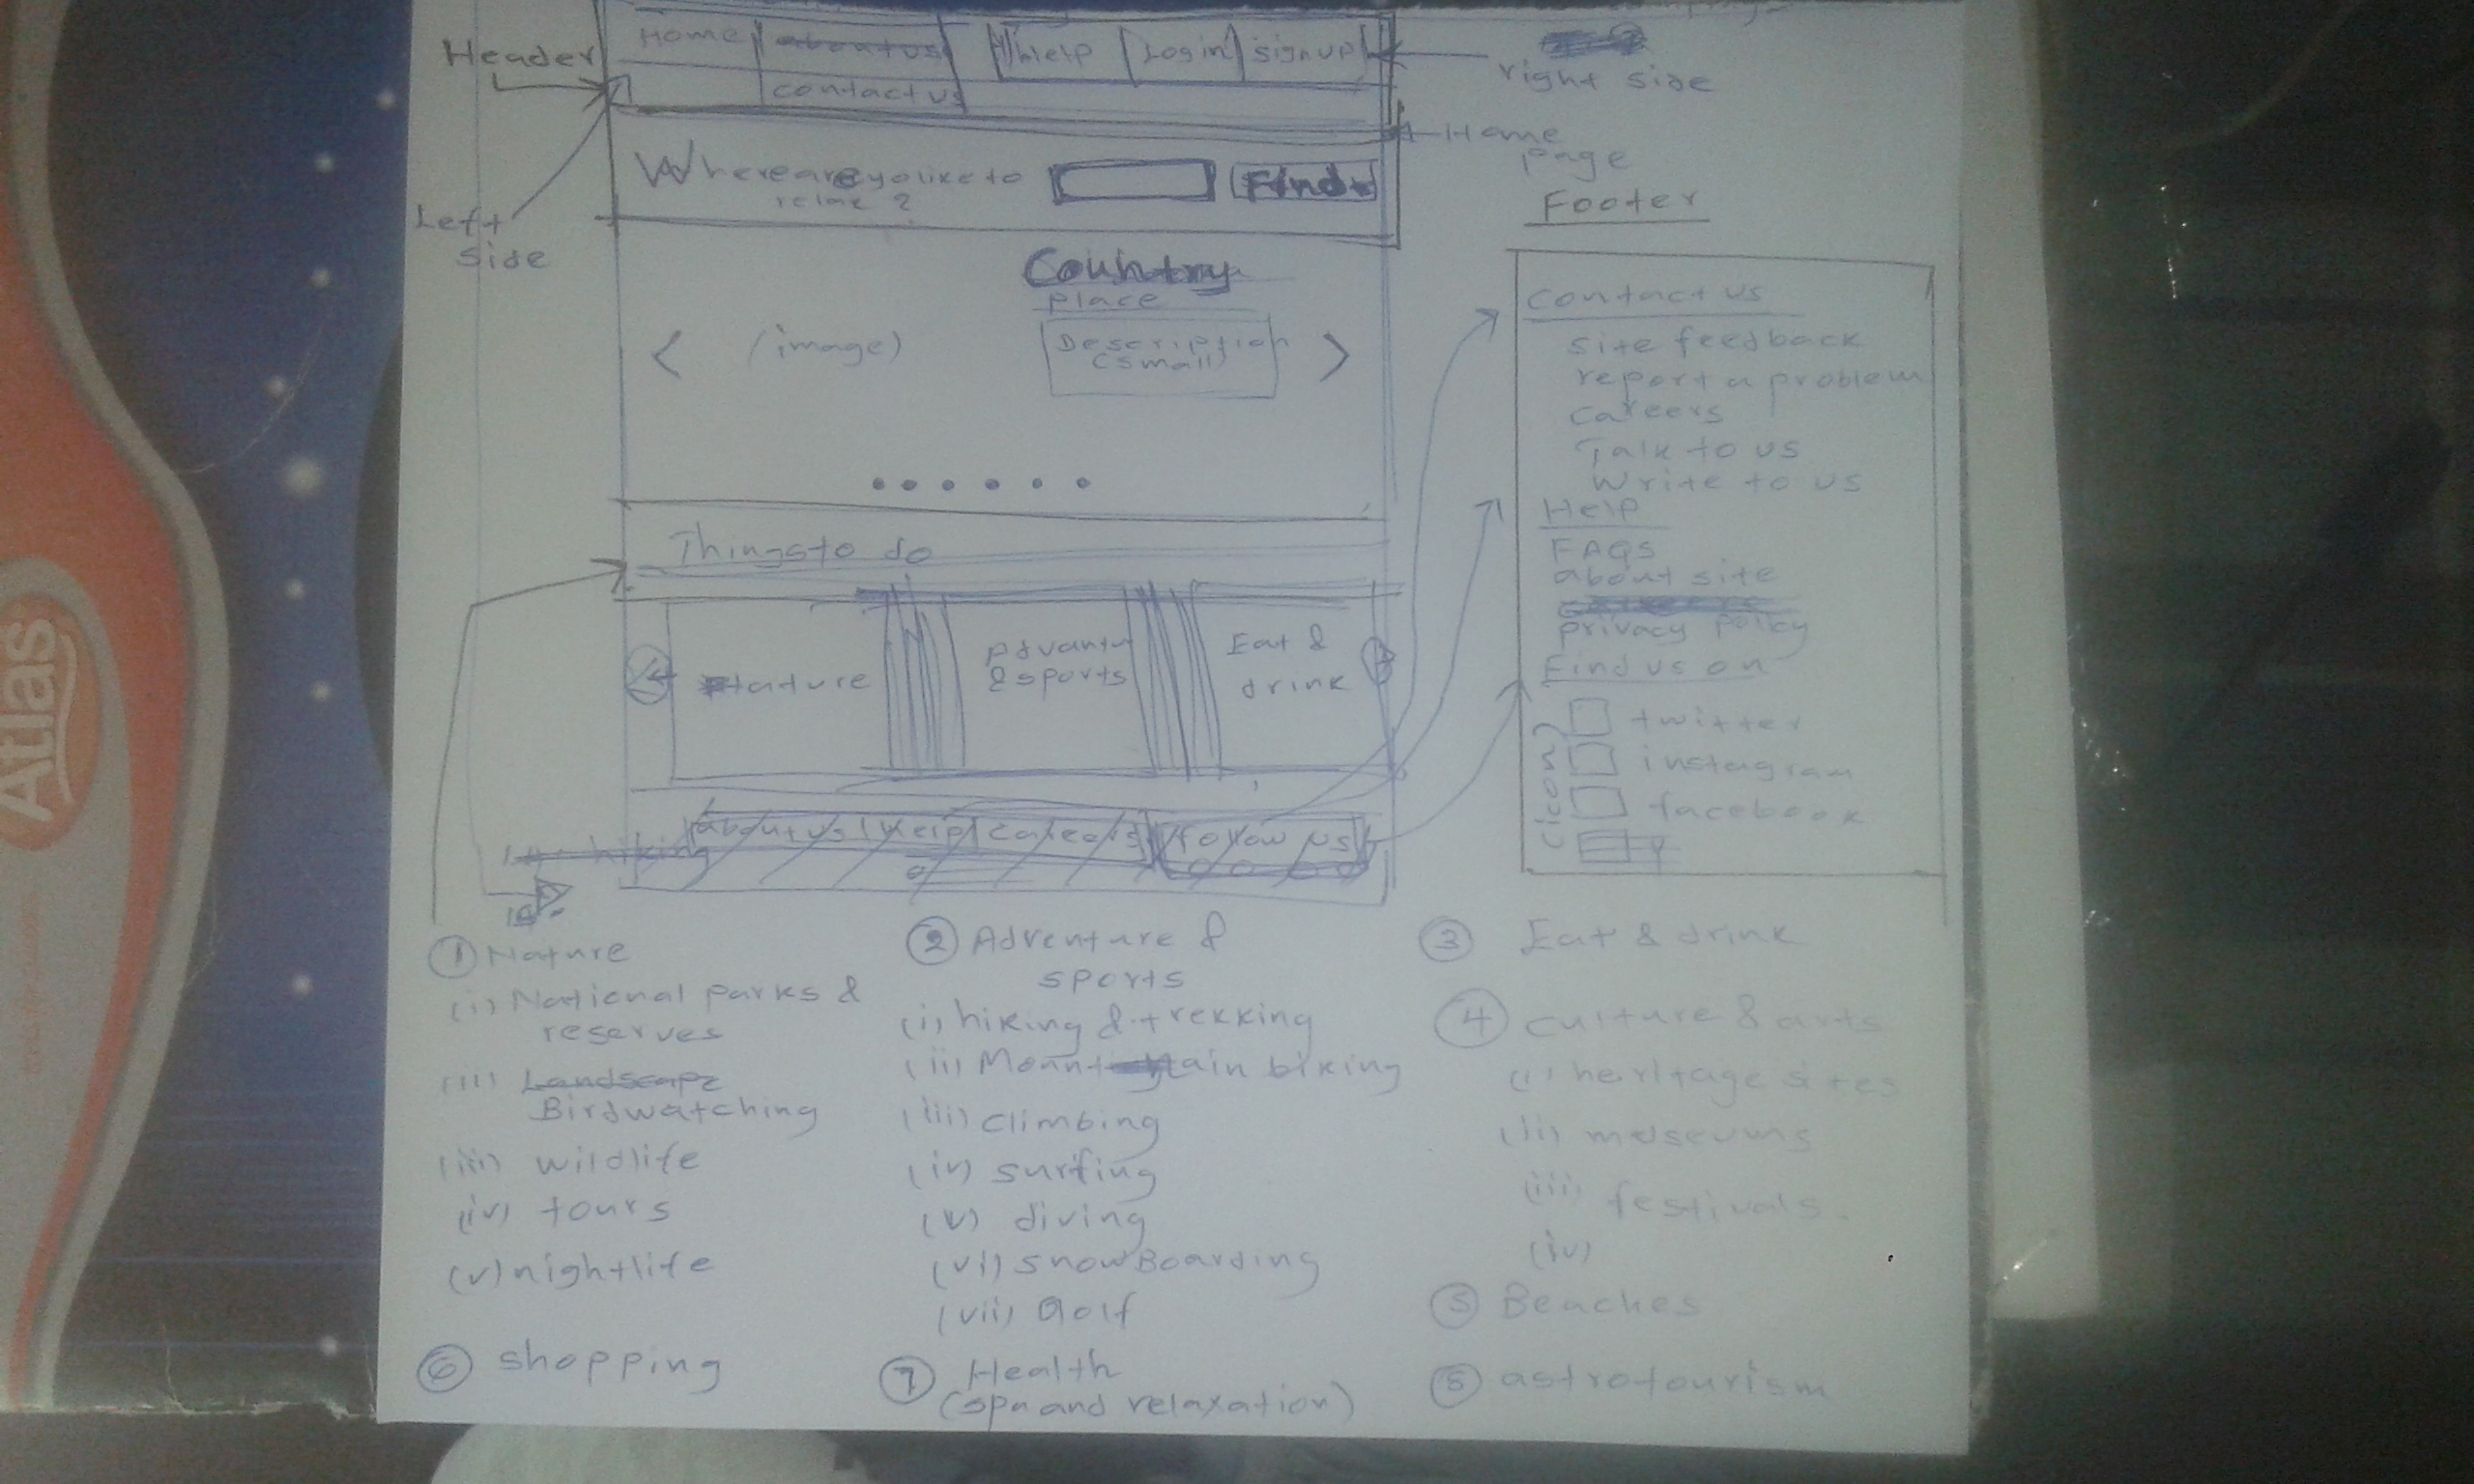 Header
Home
about us
help
Login
signup
right side
contact us
Home
page
Where are yo like to
relax ?
Find
Left
side
Footer
Country
place
<
(image)
Description
(small)
>
Things to do
Nature
Advantr
& sports
Eat &
drink
about us
Help
careers
follow us
hiking
contact us
site feedback
report a problem
careers
Talk to us
Write to us
Help
FAQS
about site
privacy policy
Find us on
(icon)
twitter
instagram
facebook
① Nature
(i) National parks &
reserves
(ii) Landscape
Birdwatching
(iii) wildlife
(iv) tours
(v) nightlife
② Adventure &
sports
(i) hiking & trekking
(ii) Mountain biking
(iii) climbing
(iv) surfing
(v) diving
(vi) snowBoarding
(vii) Golf
③ Eat & drink
④ culture & arts
(i) heritage sites
(ii) museums
(iii) festivals.
(iv)
⑤ Beaches
⑥ shopping
⑦ Health
(spa and relaxation)
⑧ astrotourism
Atlas